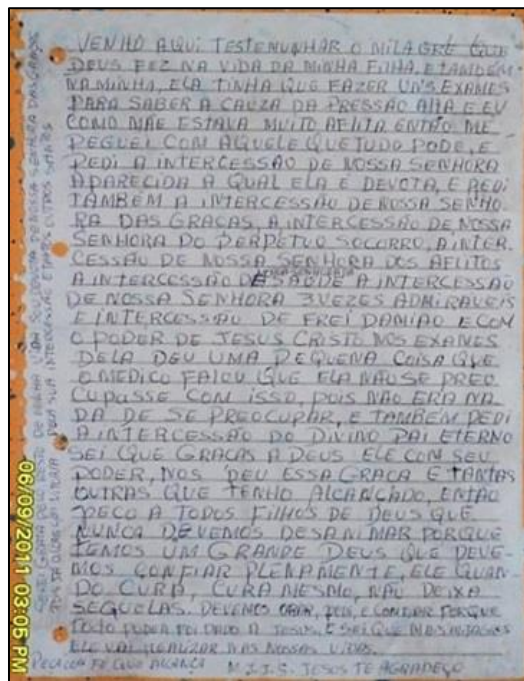 VENHO AQUI TESTEMUNHAR O MILAGRE QUE
DEUS FEZ NA VIDA DA MINHA FILHA, E TAMBÉM
NA MINHA, ELA TINHA QUE FAZER UNS EXAMES
PARA SABER A CAUZA DA PRESSÃO ALTA E EU
COMO MÃE ESTAVA MUITO AFLITA ENTÃO ME
PEGUEI COM AQUELE QUE TUDO PODE, E
PEDI A INTERCESSÃO DE NOSSA SENHORA
APARECIDA A QUAL ELA É DEVOTA, E PEDI
TAMBÉM A INTERCESSÃO DE NOSSA SENHO-
RA DAS GRAÇAS, A INTERCESSÃO DE NOSSA
SENHORA DO PERPÉTUO SOCORRO, A INTER-
CESSÃO DE NOSSA SENHORA DOS AFLITOS
A INTERCESSÃO DE SAÚDE A INTERCESSÃO
DE NOSSA SENHORA 3 VEZES ADMIRAVEIS
E INTERCESSÃO DE FREI DAMIÃO E COM
O PODER DE JESUS CRISTO NOS EXAMES
DELA DEU UMA PEQUENA COISA QUE
O MEDICO FALOU QUE ELA NÃO SE PREO
CUPASSE COM ISSO, POIS NÃO ERA NA
DA DE SE PREOCUPAR, E TAMBÉM PEDI
A INTERCESSÃO DO DIVINO PAI ETERNO
SEI QUE GRAÇAS A DEUS ELE COM SEU
PODER, NOS DEU ESSA GRAÇA E TANTAS
OUTRAS QUE TENHO ALCANÇADO, ENTÃO
PEÇO A TODOS FILHOS DE DEUS QUE
NUNCA DEVEMOS DESANIMAR PORQUE
TEMOS UM GRANDE DEUS QUE DEVE-
MOS CONFIAR PLENAMENTE, ELE QUAN-
DO CURA, CURA MESMO, NÃO DEIXA
SEQUELAS. DEVEMOS ORAR, PEDI, E CONFIAR PORQUE
TODO PODER FOI DADO A JESUS. E SEI QUE
ELE VAI REALIZAR NAS NOSSAS VIDAS.
PEÇA COM FÉ QUE ALCANÇA M.I.J.S. JESUS TE AGRADEÇO
SEREI GRATA PELO RESTO DE MINHA VIDA SOU DEVOTA DE NOSSA SENHORA DAS GRAÇAS
PELA SUA INTERCESSÃO, E TANTOS OUTROS SANTOS
06/09/2011 03:05 PM